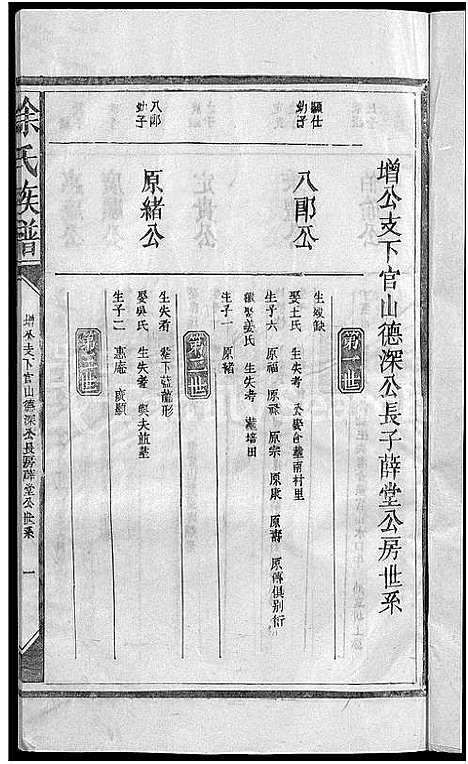 增公支下官山德深公長子薛堂公房世系
顯仕
幼子
八郎公
第一世
生歿缺
娶王氏 公娶合塟南村里
生子六 原福 原祿 原宗 原康 原壽 原傳俱別衍
繼娶姜氏 生失考 塟培田
生子一 原緒
八郎
幼子
原緒公
第二世
生失考 塟下莊龍形
娶吳氏 生失考 與夫莊塟
生子二 惠庵 廣顯
徐氏族譜
增公支下官山德深公長房薛堂公世系
一